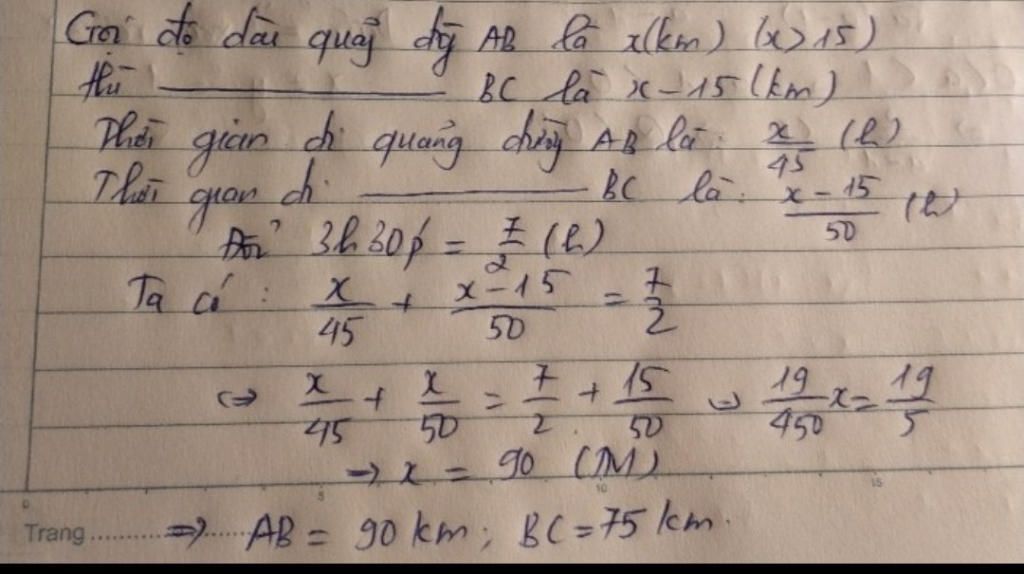 Gọi độ dài quãg đg AB là x(km) (x>15)
thì ———— BC là x-15 (km)
Thời gian đi quảng đường AB là: x/45 (h)
Thời gian đi ———— BC là: x-15/50 (h)
Đổi 3h30p = 7/2 (h)
Ta có: x/45 + x-15/50 = 7/2
⇔ x/45 + x/50 = 7/2 + 15/50 ⇒ 19/450 x = 19/5
⇒ x = 90 (TM)
0 5 10 15
Trang........⇒....... AB = 90 km; BC = 75 km.